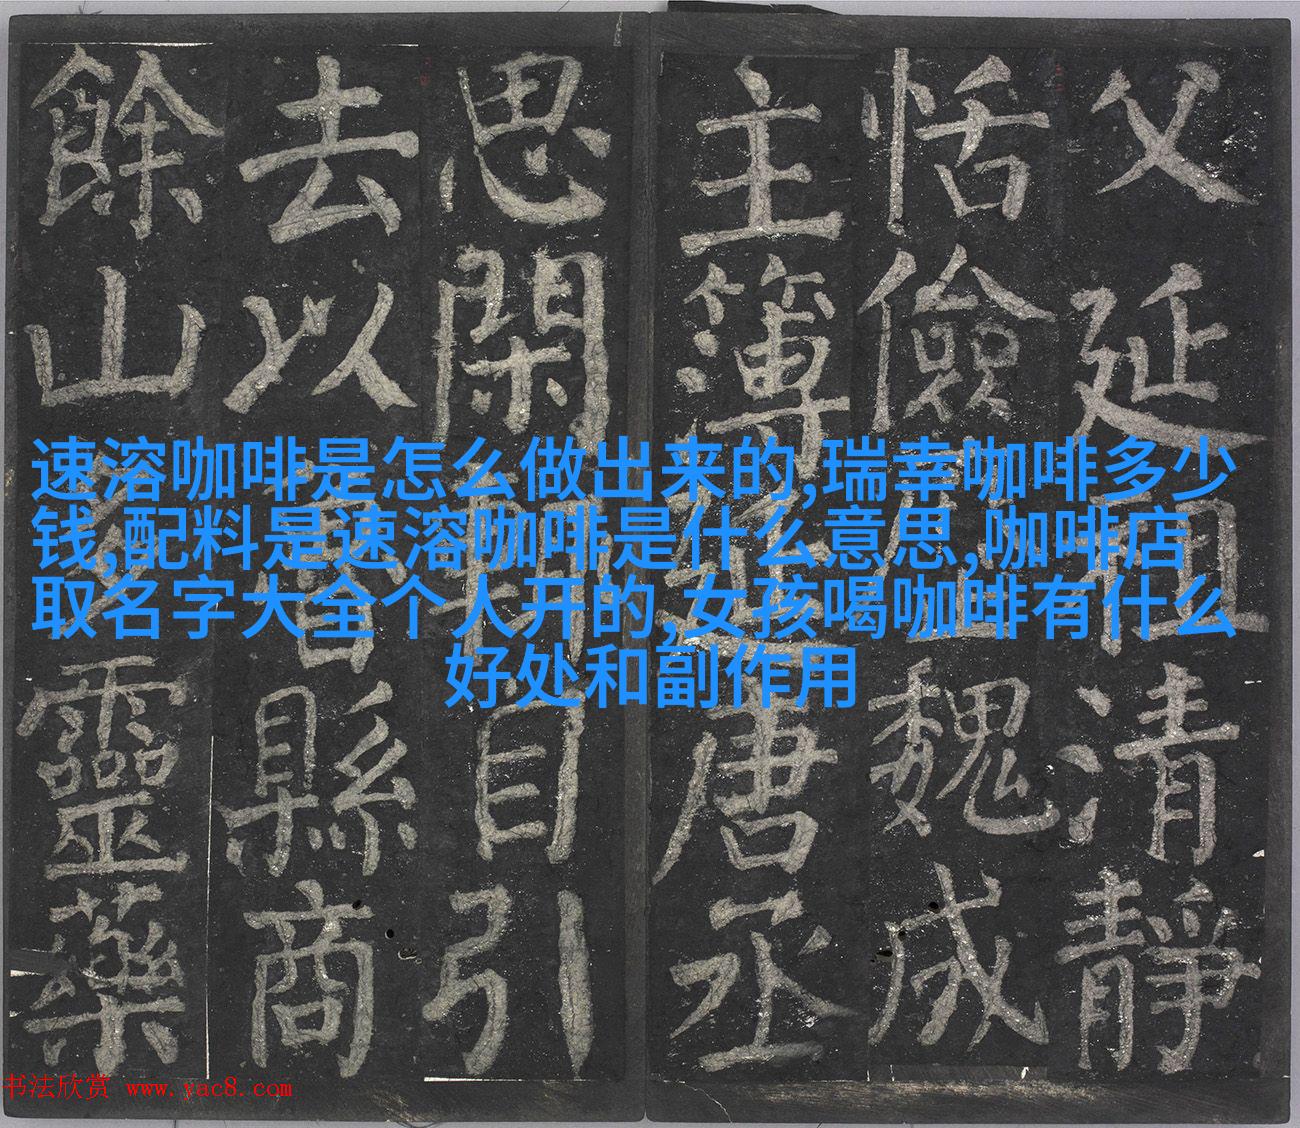 父延祖清靜
恬儉歷魏成
主簿延唐丞
思閑輒自引
去以魯縣商
餘山多靈藥
速溶咖啡是怎么做出来的,瑞幸咖啡多少
钱,配料是速溶咖啡是什么意思,咖啡店
取名字大全个人开的,女孩喝咖啡有什么
好处和副作用
书法欣赏 www.yac8.com